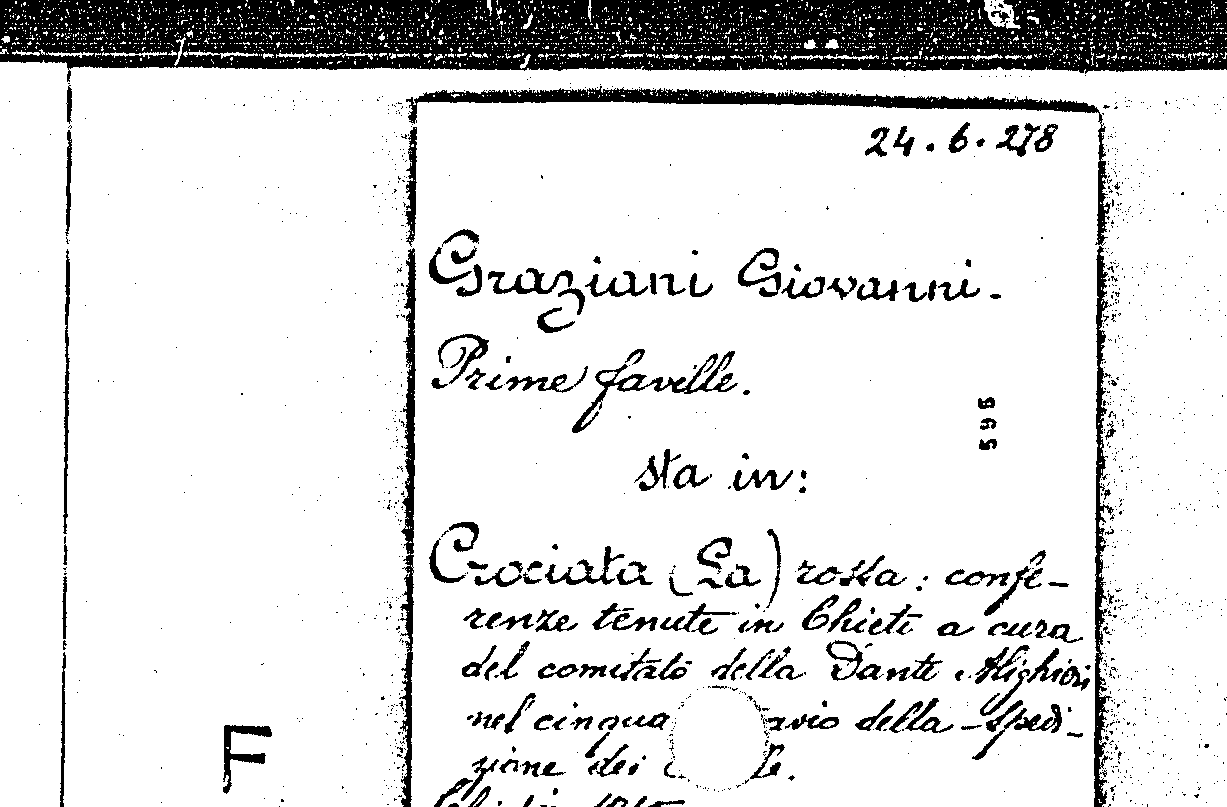 24.6.278
Graziani Giovanni.
Prime faville.
595
sta in:
Crociata (La) rossa: confe-
renze tenute in Chieti a cura
del comitato della Dante Alighieri
nel cinqua avio della Spedi-
zione dei le.
F